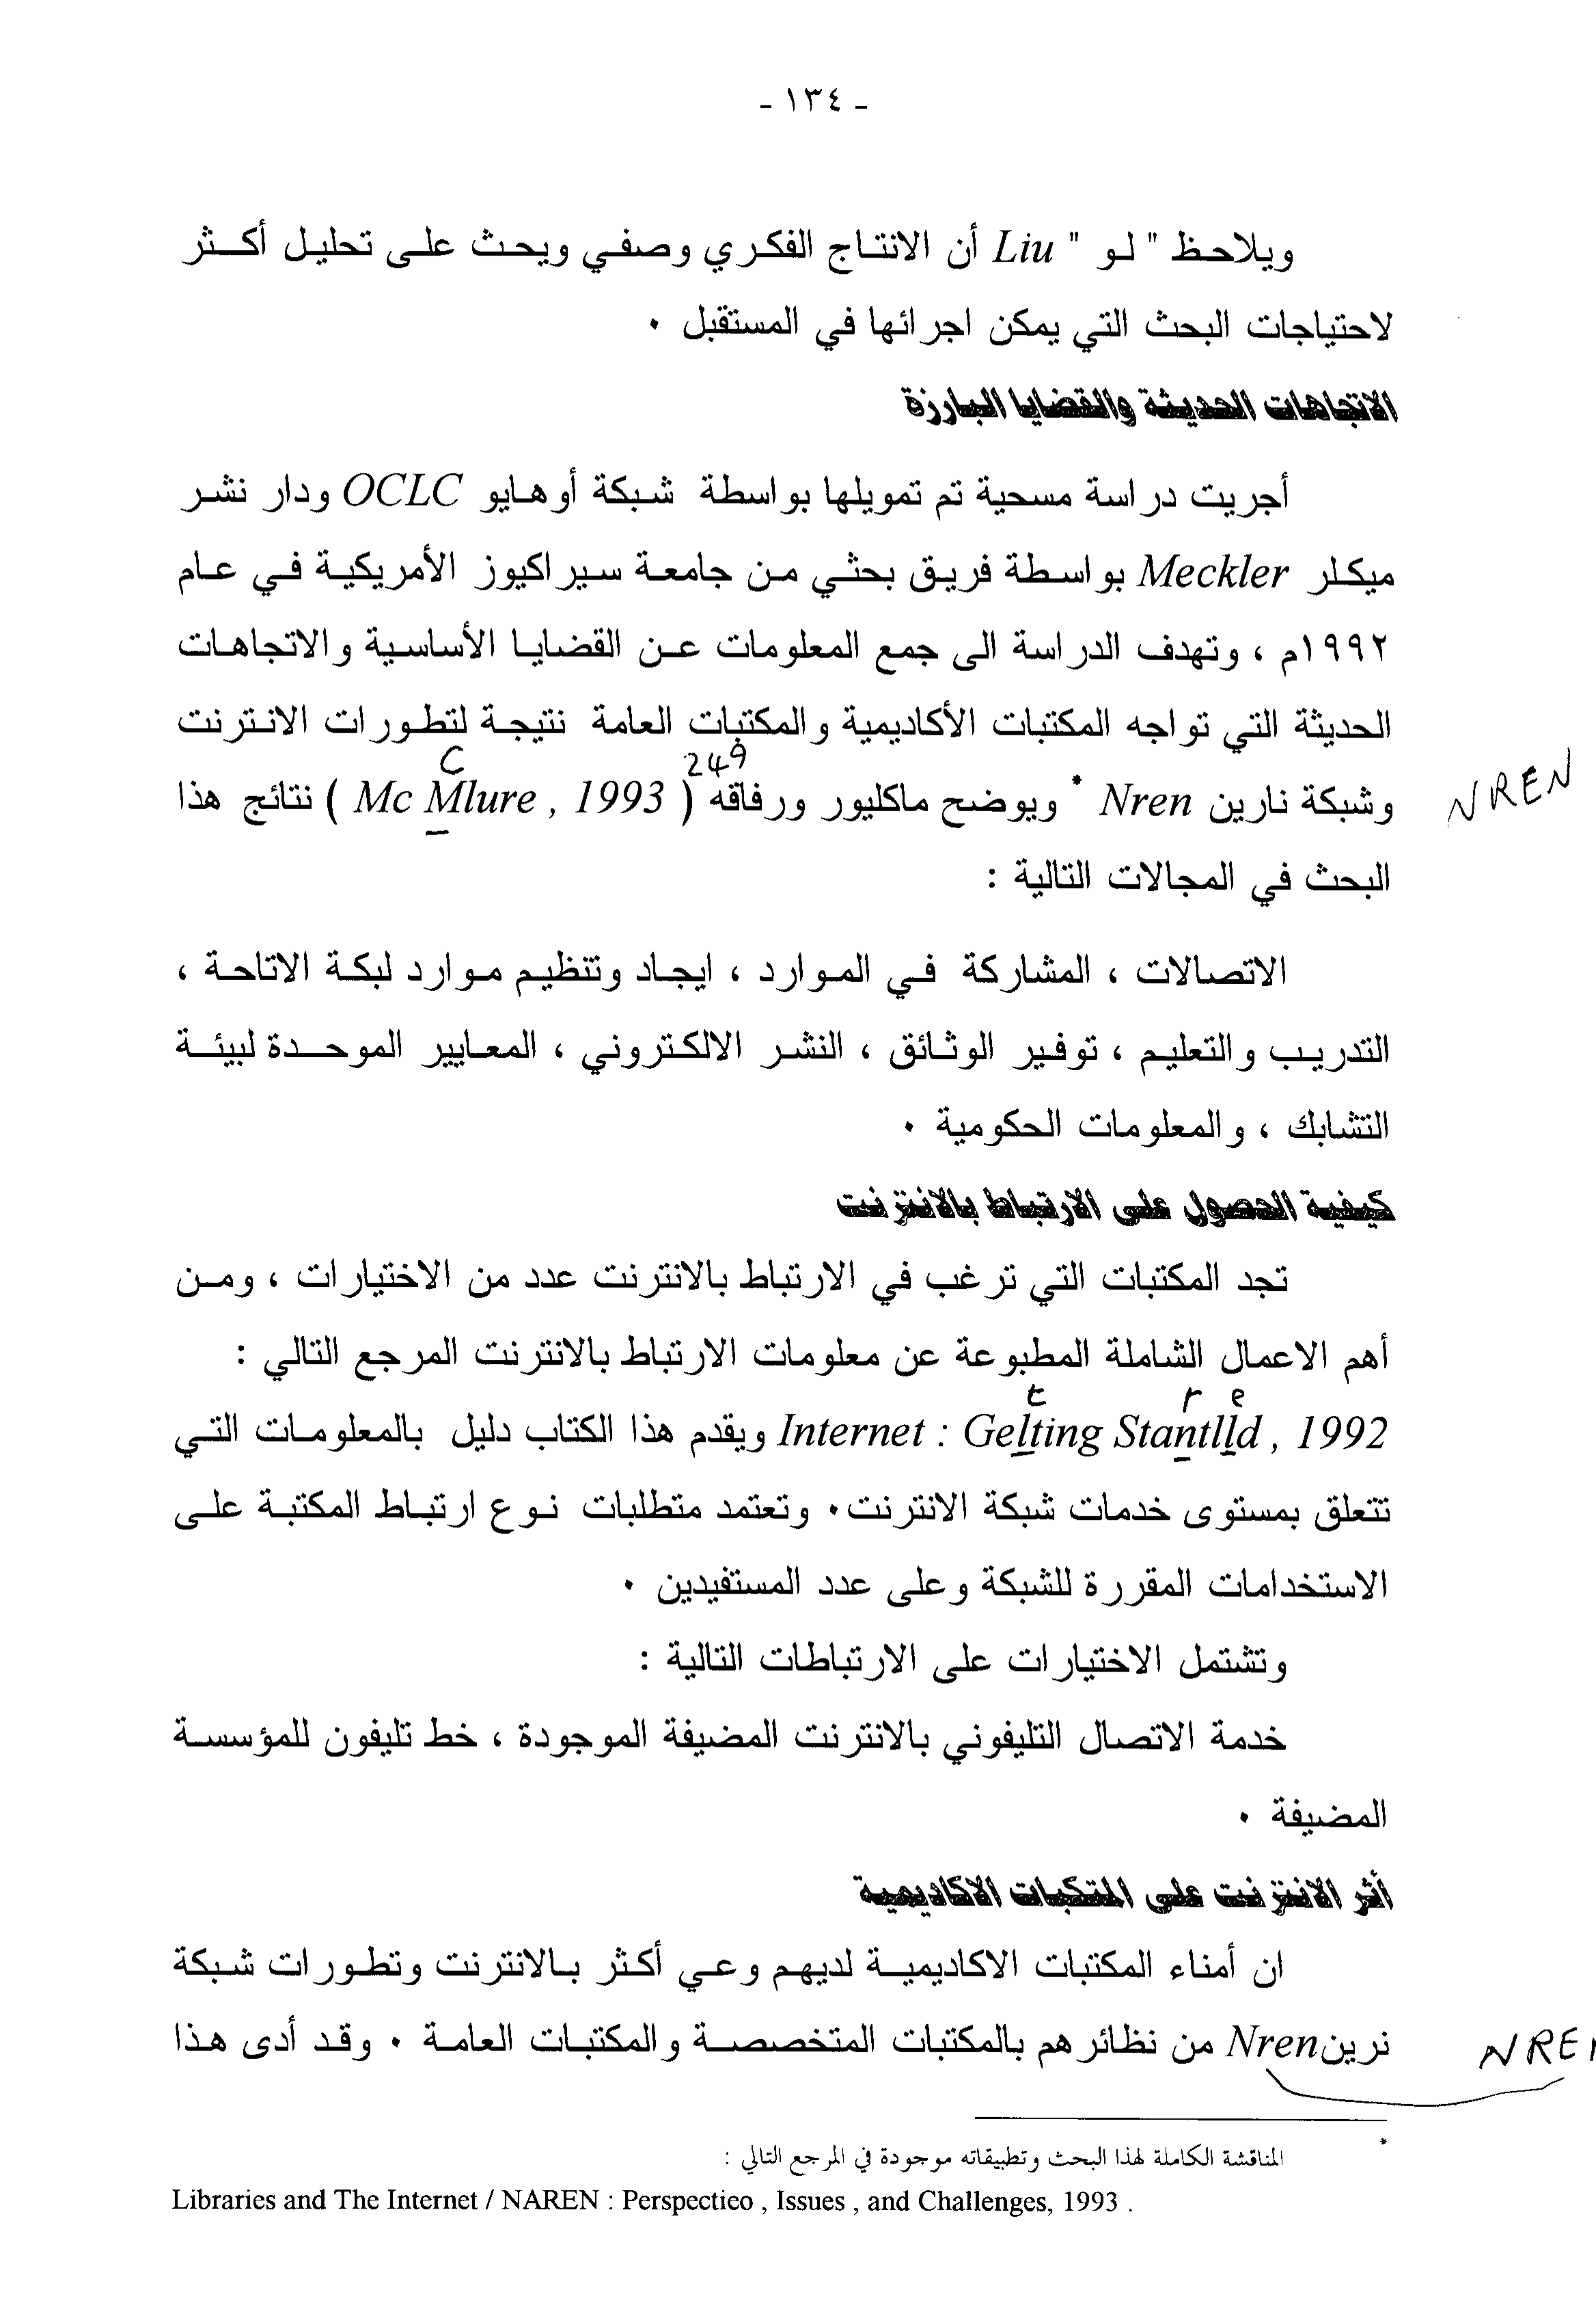 - ١٣٤ -
ويلاحظ " لو " Liu أن الانتاج الفكري وصفي ويحث على تحليل أكثر
لاحتياجات البحث التي يمكن اجرائها في المستقبل .
الاتجاهات الحديثة والقضايا البارزة
أجريت دراسة مسحية تم تمويلها بواسطة شبكة أوهايو OCLC ودار نشر
ميكلر Meckler بواسطة فريق بحثي من جامعة سيراكيوز الأمريكية في عام
١٩٩٢م ، وتهدف الدراسة الى جمع المعلومات عن القضايا الأساسية والاتجاهات
الحديثة التي تواجه المكتبات الأكاديمية والمكتبات العامة نتيجة لتطورات الانترنت
249 C
وشبكة نارين Nren * ويوضح ماكليور ورفاقه ( Mc Mlure , 1993 ) نتائج هذا
NREN
البحث في المجالات التالية :
الاتصالات ، المشاركة في الموارد ، ايجاد وتنظيم موارد لبكة الاتاحة ،
التدريب والتعليم ، توفير الوثائق ، النشر الالكتروني ، المعايير الموحدة لبيئة
التشابك ، والمعلومات الحكومية .
كيفية الحصول على الارتباط بالانترنت
تجد المكتبات التي ترغب في الارتباط بالانترنت عدد من الاختيارات ، ومن
أهم الاعمال الشاملة المطبوعة عن معلومات الارتباط بالانترنت المرجع التالي :
t r e
Internet : Gelting Stantlld , 1992 ويقدم هذا الكتاب دليل بالمعلومات التي
تتعلق بمستوى خدمات شبكة الانترنت . وتعتمد متطلبات نوع ارتباط المكتبة على
الاستخدامات المقررة للشبكة وعلى عدد المستفيدين .
وتشتمل الاختيارات على الارتباطات التالية :
خدمة الاتصال التليفوني بالانترنت المضيفة الموجودة ، خط تليفون للمؤسسة
المضيفة .
أثر الانترنت على المتكبات الاكاديمية
ان أمناء المكتبات الاكاديمية لديهم وعي أكثر بالانترنت وتطورات شبكة
نرين Nren من نظائرهم بالمكتبات المتخصصة والمكتبات العامة . وقد أدى هذا
NREN
* المناقشة الكاملة لهذا البحث وتطبيقاته موجودة في المرجع التالي :
Libraries and The Internet / NAREN : Perspectieo , Issues , and Challenges, 1993 .